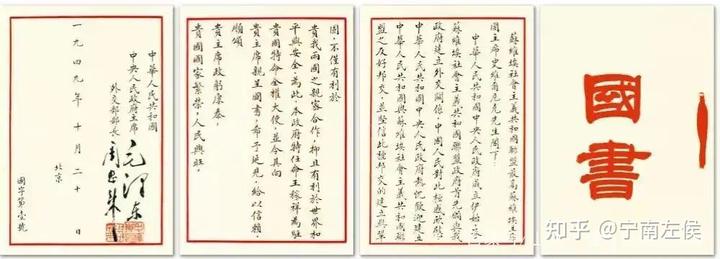 國書
蘇維埃社會主義共和國聯盟最高蘇維埃主席
團主席史維爾尼克先生閣下：
中華人民共和國中央人民政府成立伊始，承
蘇維埃社會主義共和國聯盟政府首先願與我
政府建立外交關係，中國人民對此極感欣慰。
中華人民共和國中央人民政府熱忱歡迎建立
中華人民共和國與蘇維埃社會主義共和國聯
盟之友好邦交，並堅信此種邦交的建立與鞏
固，不僅有利於
貴我兩國之親密合作，抑且有利於世界和
平與安全。為此，本政府特任命王稼祥為駐
貴國特命全權大使，並令其向
貴主席親呈國書，希予延見，給以信賴。
順頌
貴主席政躬康泰，
貴國國家繁榮，人民興旺。
中華人民共和國
中央人民政府主席 毛澤東
外交部部長 周恩來
一九四九年十月二十日
北京
國字第壹號
知乎 @宁南左侯